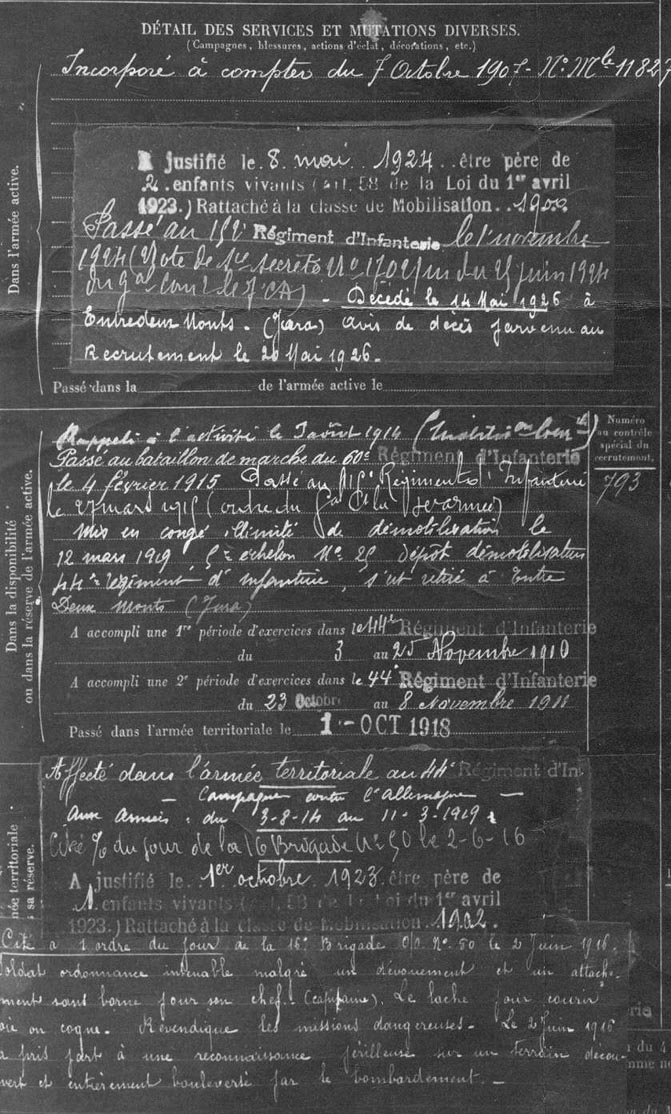 DÉTAIL DES SERVICES ET MUTATIONS DIVERSES.
(Campagnes, blessures, actions d'éclat, décorations, etc.)
Incorporé à compter du 7 Octobre 1907 - No Mle 11827
Dans l'armée active.
A justifié le 8 mai 1924 être père de
2 enfants vivants (art. 58 de la Loi du 1er avril
1923.) Rattaché à la classe de Mobilisation 1900
Passé au Régiment d'Infanterie le 1er novembre
1924 (Note de secrète No du 25 juin 1924
Décédé le 14 Mai 1926 à
Entredeux Monts. (Jura) Avis de décès parvenu au
Recrutement le 20 Mai 1926.
Passé dans la de l'armée active le
Dans la disponibilité
ou dans la réserve de l'armée active.
Numéro
au contrôle
spécial du
recrutement.
793
Rappelé à l'activité le 3 août 1914
Passé au bataillon de marche du 60e Régiment d'Infanterie
le 4 février 1915 Passé au Régiment d'Infanterie
le 27 mars 1915 (ordre du
Mis en congé illimité de démobilisation le
12 mars 1919, 5e échelon No 25 Dépôt démobilisateur
44e régiment d'infanterie, s'est retiré à Entre
Deux Monts (Jura)
A accompli une 1re période d'exercices dans le 44e Régiment d'Infanterie
du 3 au 25 Novembre 1910
A accompli une 2e période d'exercices dans le 44e Régiment d'Infanterie
du 23 Octobre au 8 Novembre 1911
Passé dans l'armée territoriale le 1 - OCT 1918
Affecté dans l'armée territoriale au 44e Régiment d'In
- Campagne contre l'Allemagne -
Aux Armées : du 3-8-14 au 11-3-1919.
Cité % du jour de la 16 Brigade No 50 le 2-6-16
A justifié le 1er octobre 1923 être père de
1 enfants vivants (art. 58 de la Loi du 1er avril
1923.) Rattaché à la classe de Mobilisation 1902
née territoriale
sa réserve.
Cité à l'ordre du jour de la 16e Brigade O/O No 50 le 2 Juin 1916.
Soldat ordonnance intenable malgré un dévouement et un attache-
ment sans borne pour son chef (capitaine). Le lache pour courir
où on cogne. Revendique les missions dangereuses. Le 2 Juin 1916
a pris part à une reconnaissance périlleuse sur un terrain décou-
vert et entièrement bouleversé par le bombardement. -